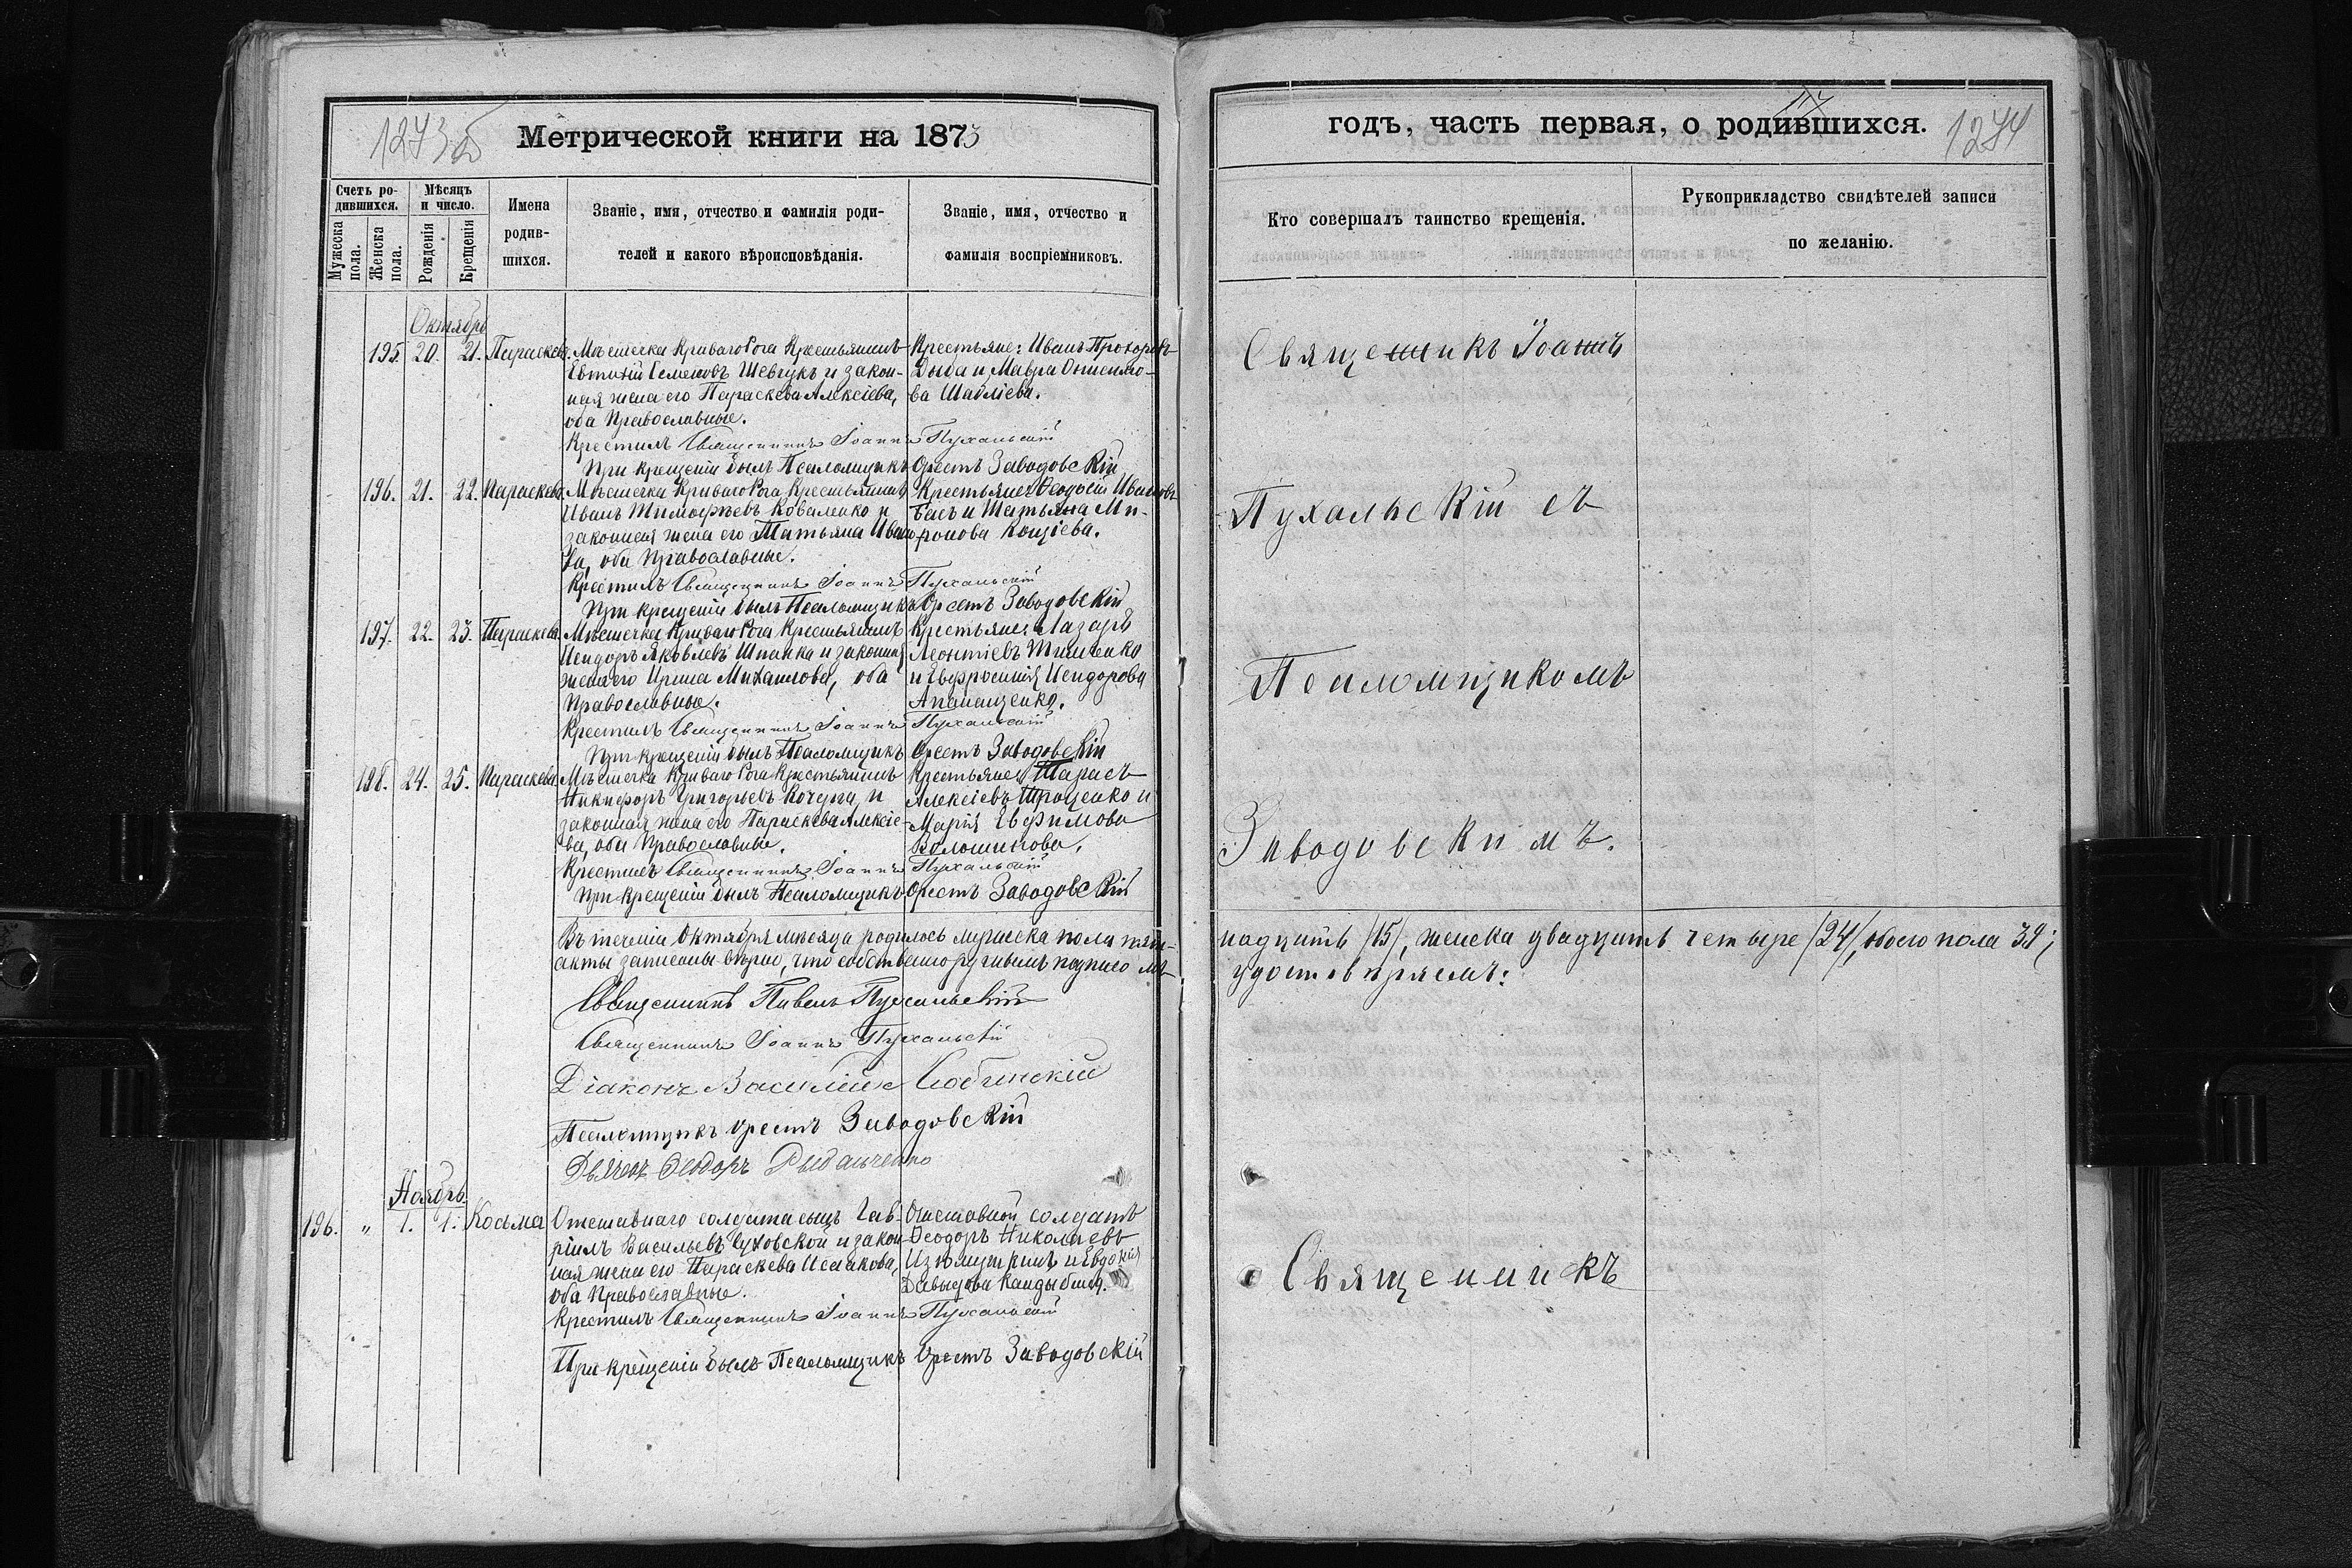 1273 об
Метрической книги на 1873
Счетъ ро-
дившихся.
Мѣсяцъ
и число.
Мужеска
пола.
Женска
пола.
Рожденія
Крещенія
Имена
родив-
шихся.
Званіе, имя, отчество и фамилія роди-
телей и какого вѣроисповѣданія.
Званіе, имя, отчество и
фамилія воспріемниковъ.
Октябрь
195. 20. 21. Параскева. Мѣстечка Криваго Рога Крестьянинъ
Евтихій Семеновъ Шевчукъ и закон-
ная жена его Параскева Алексіева,
оба Православные.
Крестьяне: Иванъ Прохоровъ
Дыба и Мавра
ва Шаблiева.
Крестилъ Священникъ Іоаннъ Пухальскій
При крещеніи былъ Псаломщикъ Орестъ Заводовскій
196. 21. 22. Параскева. Мѣстечка Криваго Рога Крестьянинъ
Иванъ Тимофѣевъ Коваленко и
законная жена его Татьяна Ивано
ва, оба Православные.
Крестьяне: Ѳеодосій Ивановъ
Басъ и Татьяна Ми-
ронова
Крестилъ Священникъ Іоаннъ Пухальскій
При крещеніи былъ Псаломщикъ Орестъ Заводовскій
197. 22. 23. Параскева. Мѣстечка Криваго Рога Крестьянинъ
Исидоръ Яковлевъ Шпанка и законная
жена его Ирина Михаилова, оба
Православные.
Крестьяне: Лазарь
Леонтіевъ Тимченко
и Евфросинія Исидорова
Апанащенко.
Крестилъ Священникъ Іоаннъ Пухальскій
При крещеніи былъ Псаломщикъ Орестъ Заводовскій
198. 24. 25. Параскева. Мѣстечка Криваго Рога Крестьянинъ
Никифоръ Григорьевъ Кочура, и
законная жена его Параскева Алексіе-
ва, оба Православные.
Крестьяне: Тарасъ
Алексіевъ Троценко и
Марія Евфимова
Волошинова.
Крестилъ Священникъ Іоаннъ Пухальскій
При крещеніи былъ Псаломщикъ Орестъ Заводовскій
Въ теченіи Октября мѣсяца родилось мужеска пола пят-
акты записаны вѣрно, что собственноручнымъ подписомъ
Священникъ Павелъ Пухальскій
Священникъ Іоаннъ Пухальскій
Діаконъ Василій
Псаломщикъ Орестъ Заводовскій
Дьячекъ Ѳеодоръ Рыбальченко
Ноябрь
196. " 1. 1. Косьма Отставнаго солдата сынъ Гав-
ріилъ Васильевъ Суховской и закон-
ная жена его Параскева Исаакова,
оба Православные.
Отставной солдатъ
Ѳеодоръ Николаевъ
и Евдокія
Давыдова
Крестилъ Священникъ Іоаннъ Пухальскій
При крещеніи былъ Псаломщикъ Орестъ Заводовскій
годъ, часть первая, о родившихся.
1274
Кто совершалъ таинство крещенія.
Рукоприкладство свидѣтелей записи
по желанію.
Священникъ Іоаннъ
Пухальскій съ
Псаломщикомъ
Заводовскимъ.
надцать /15/, женска двадцать четыре /24/, обоего пола 39;
удостовѣряемъ:
Священникъ